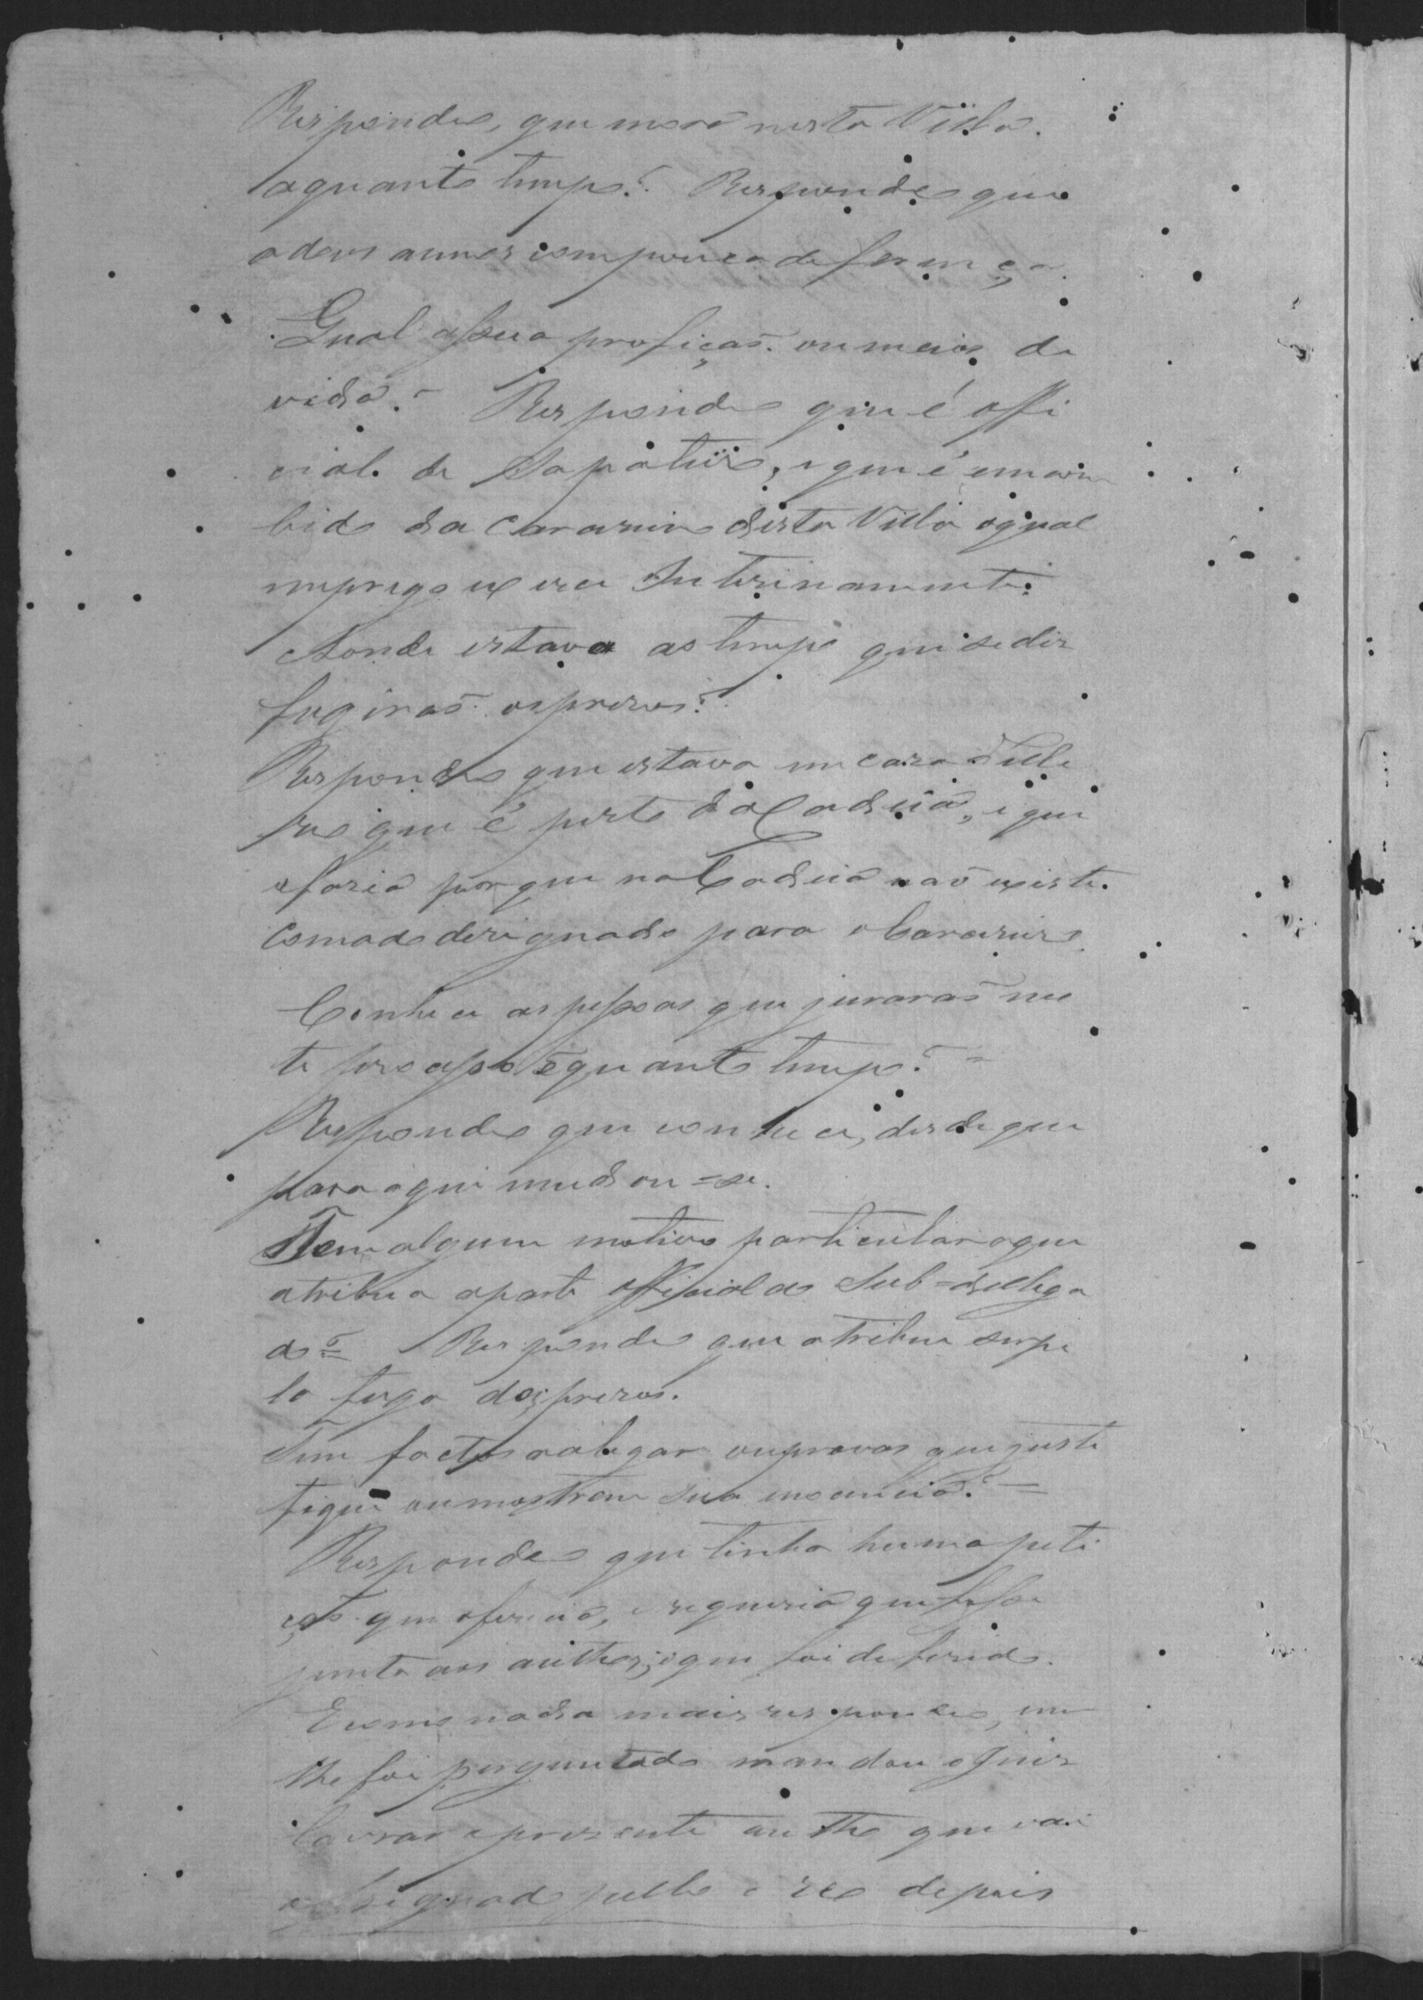 Respondeo, que mora nesta Villa.
aquanto tempo? Respondeo que
a dous annos com pouca deferença.
Qual assua profiçaõ. ou meios de
vida? Respondeo que é offi
cial de Sapateiro, e que é encom
bido da Carsereiro desta Villa o qual
emprego exerce Interinamente.
Aonde estava ao tempo que se diz
fugiraõ os prezos?
Respondeo que estava em casa delle
reo que é perto da Cadeia, e que
o fazia por que na Cadeia naõ existe
comodo designado para o Carsereiro.
Conhece as pessoas que juraraõ nes
te proceço e quanto tempo?
Respondeo que conhece, desde que
para aqui mudou=se.
Tem algum motivo particular a que
atribua a parte official do Sub=delega
do? Respondeo que atribue ser pe
la fuga dos prezos.
Tem factos a alegar ou provas que justi
fique ou mostrem sua inocencia?
Respondeo que tinha huma peti
çaõ que oferecia, e requeria que fosse
junta aos authos; o que foi deferido.
E como nada mais respondeo, nem
lhe foi perguntado mandou o Juiz
lavrar o prezente autho que vai
assignado pello reo depois